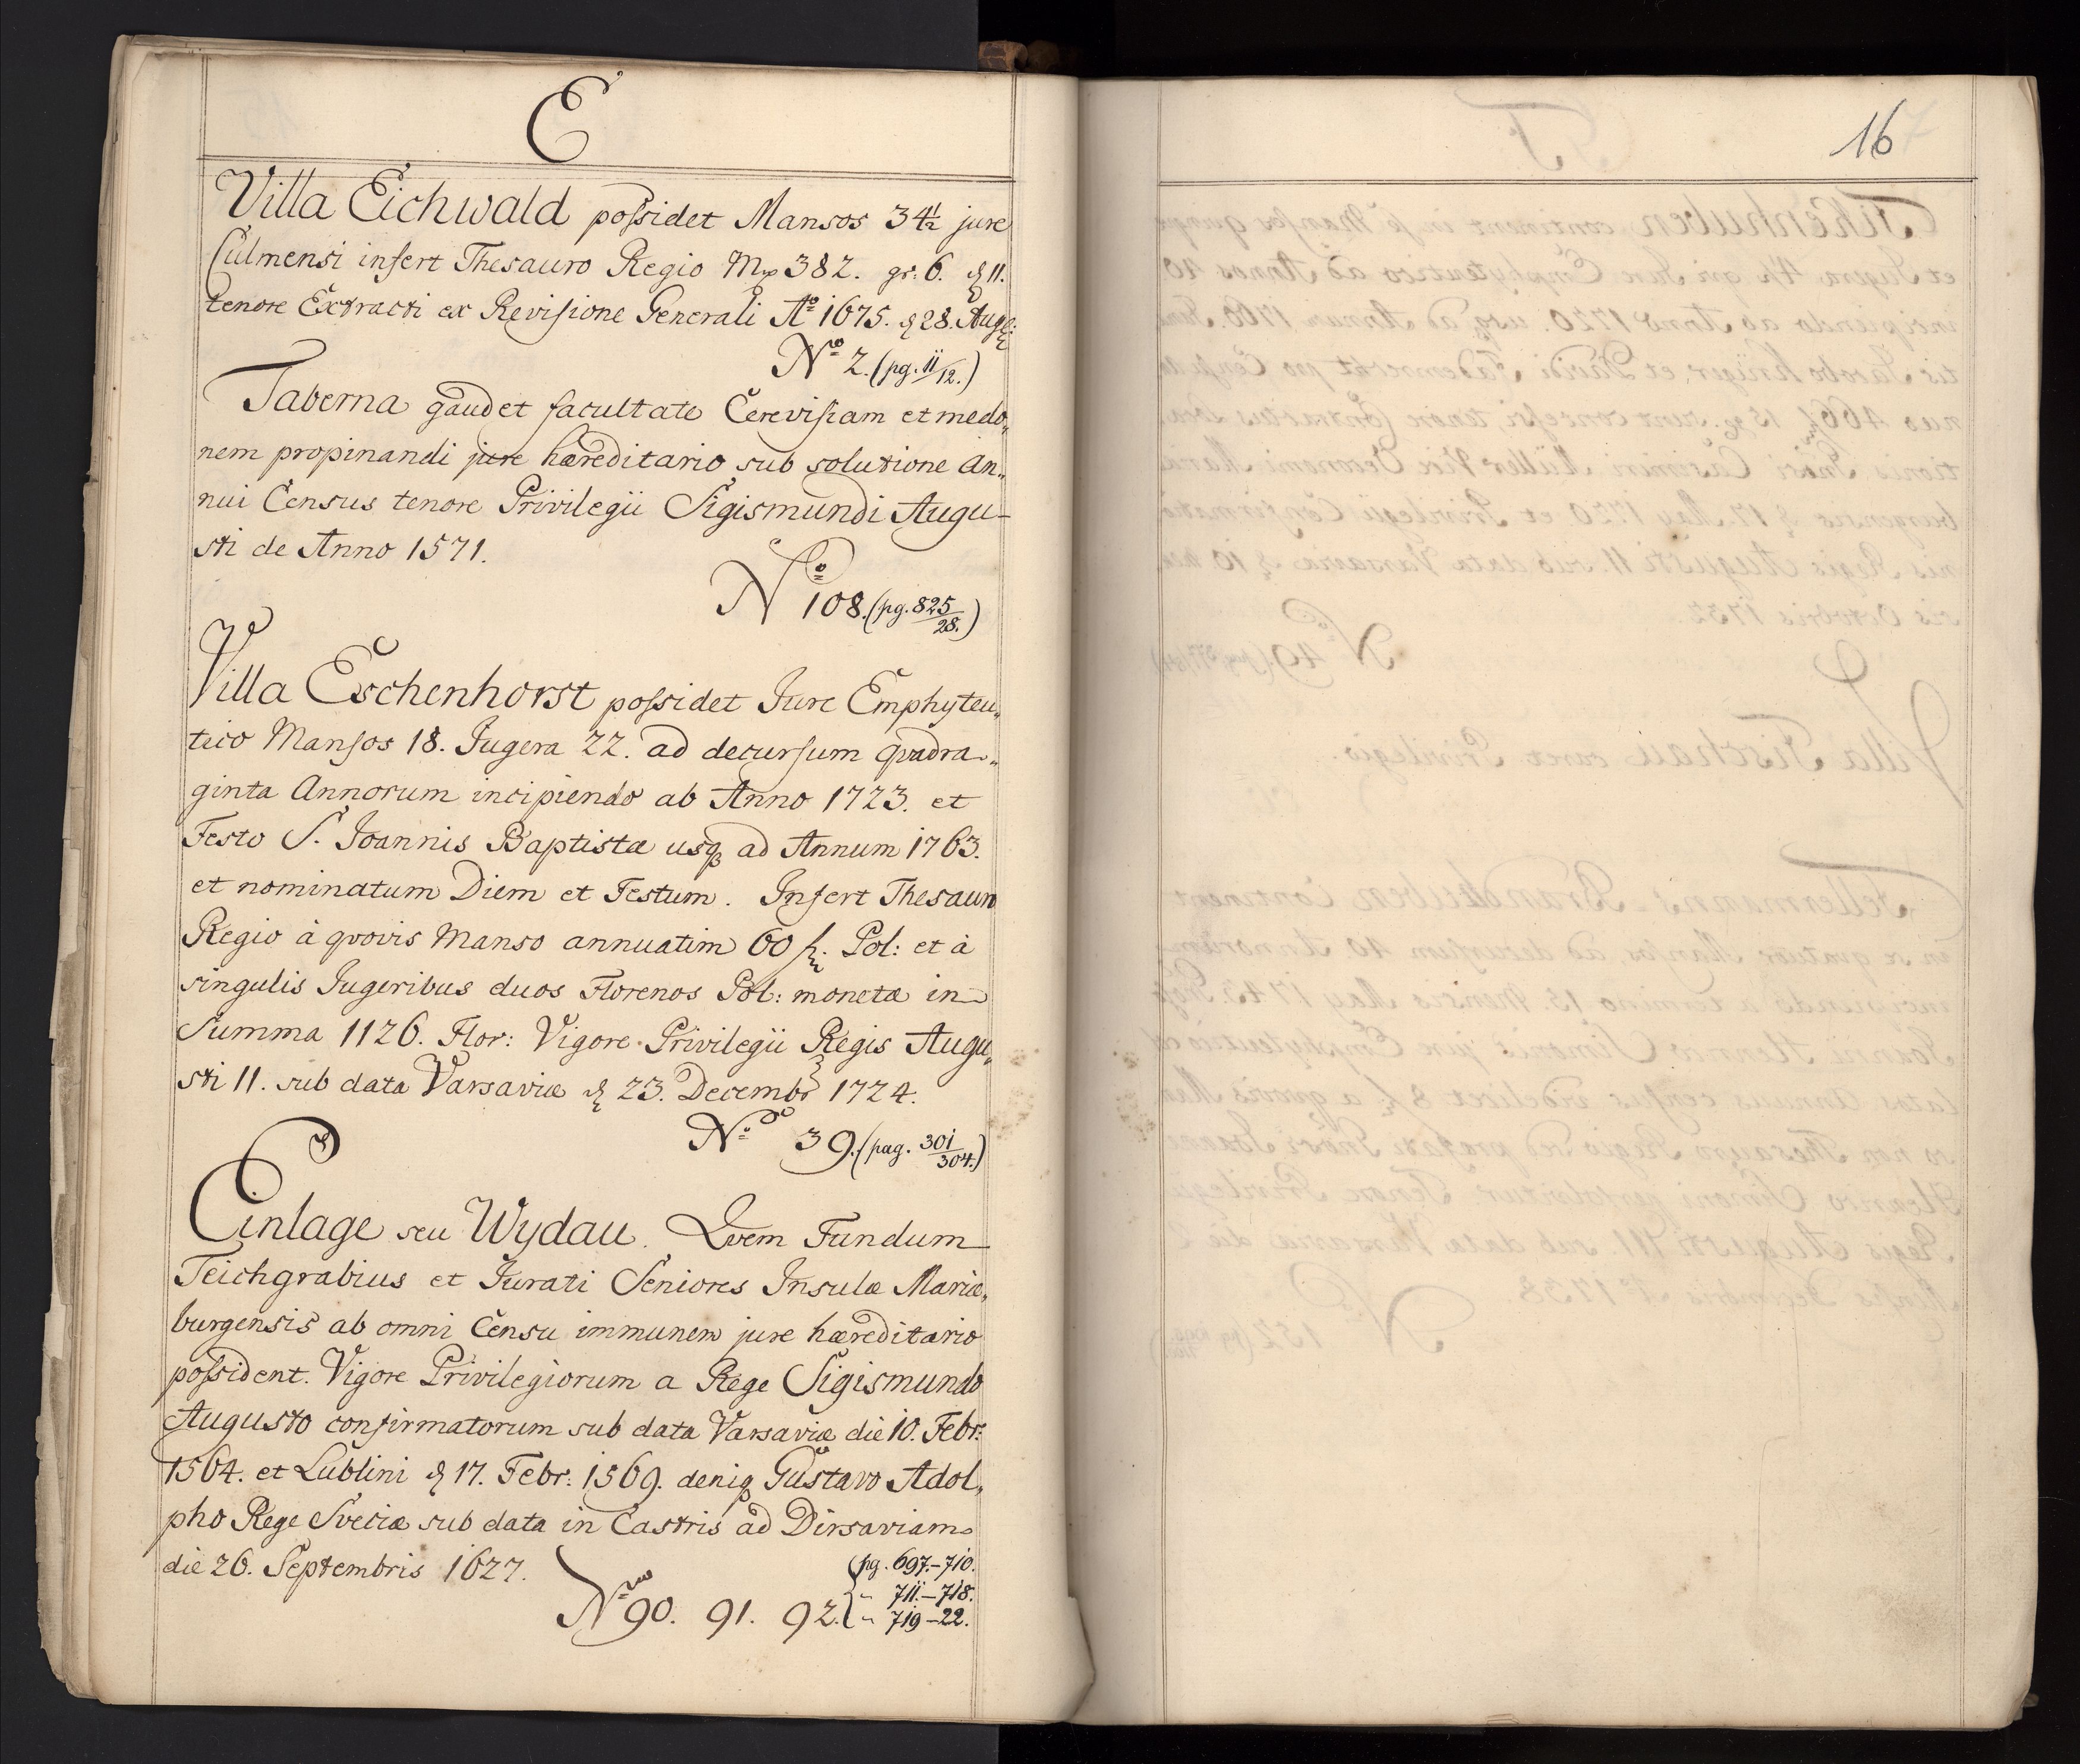 E
Villa Eichwald possidet Mansos 34½ jure
Culmensi infert Thesauro Regio Mp 382. gr: 6. ₰ 11.
tenore Extracti ex Revisione Generali Aº 1675. ₰ 28. Aug:
Nº 2. (pg. 11/12.)
Taberna gaudet facultate Cerevisiam et medo„
nem propinandi jure hæreditario sub solutione An„
nui Census tenore Privilegii Sigismundi Augu-
sti de Anno 1571.
Nº 108. (pg. 825/28.)
Villa Eschenhorst possidet Jure Emphyteu„
tico Mansos 18. Jugera 22. ad decursum quadra„
ginta Annorum incipiendo ab Anno 1723. et
Festo S. Joannis Baptistæ usq ad Annum 1763.
et nominatum Diem et Festum. Infert Thesauro
Regio à quovis Manso annuatim 60 fl: Pol: et à
singulis Jugeribus duos Florenos Pol: monetæ in
Summa 1126. Flor: Vigore Privilegii Regis Augu„
sti II. sub data Varsaviæ ₰ 23. Decembr 1724.
Nº 39. (pag. 301/304.)
Einlage seu Wydau. Quem Fundum
Teichgrabius et Jurati Seniores Insulæ Mariæ„
burgensis ab omni Censu immunem jure hæreditario
possident. Vigore Privilegiorum a Rege Sigismundo
Augusto confirmatorum sub data Varsaviæ die 10. Febr:
1564. et Lublini ₰ 17. Febr: 1569. deniq Gustavo Adol„
pho Rege Sveciæ sub data in Castris ad Dirsaviam
die 26. Septembris 1627.
Nris 90. 91. 92. (pg. 697.-710.
" 711.-718.
" 719-22.
16